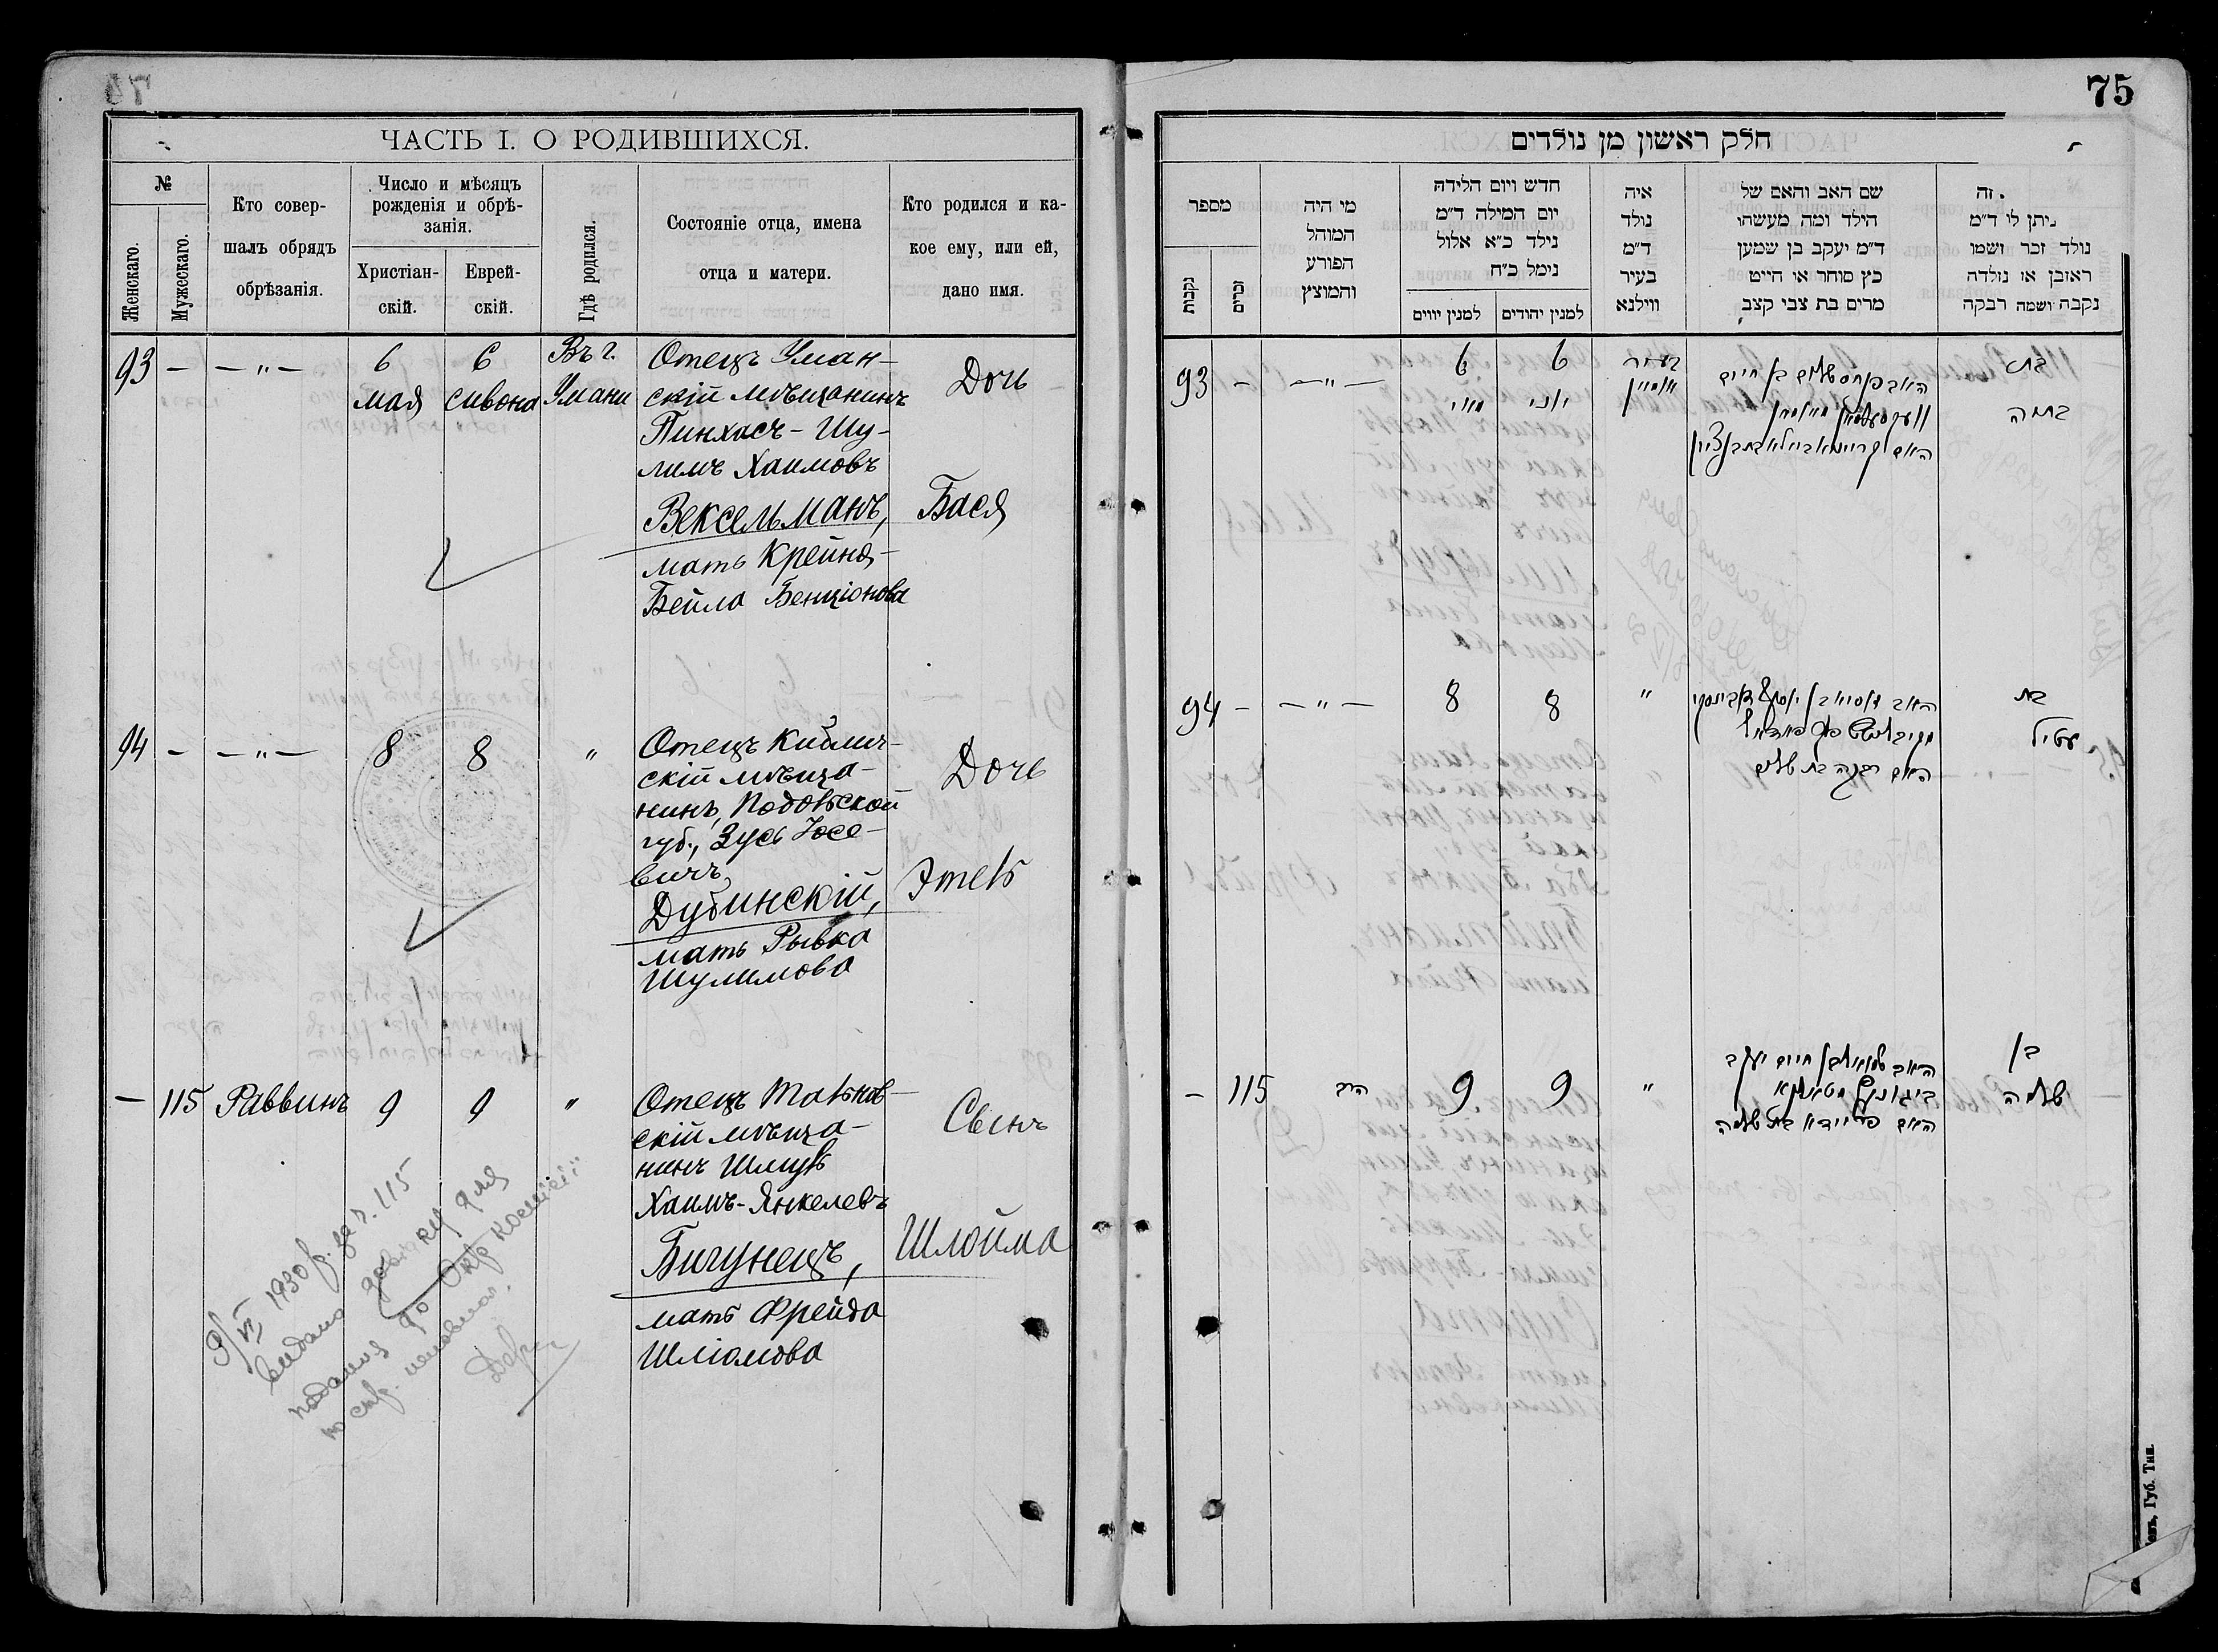 75
ЧАСТЬ I. О РОДИВШИХСЯ.
№
Женскаго.
Мужескаго.
Кто совер-
шалъ обрядъ
обрѣзанія.
Число и мѣсяцъ
рожденія и обрѣ-
занія.
Христіан-
скій.
Еврей-
скій.
Гдѣ родился.
Состояніе отца, имена
отца и матери.
Кто родился и ка-
кое ему, или ей,
дано имя.
93 — — „ — 6 6 Въ г.
мая сивона Умани
Отецъ Уман-
скій мѣщанинъ
Пинхасъ-Шу-
лимъ Хаимовъ
Вексельманъ,
мать Крейня-
Бейла Бенціонова
Дочь
Бася
94 — — „ — 8 8 „
Отецъ Кибличъ-
скій мѣща-
нинъ, Подольской
губ., Зусь Іосе-
вичъ,
Дубинскій,
мать Рывка
Шулимова
Дочь
Этель
— 115 Раввинъ 9 9 „
Отецъ Тальнов-
скій мѣща-
нинъ Шмуль
Хаимъ-Янкелевъ
Бигунецъ,
мать Фрейда
Шліомова
Сынъ
Шлойма
9/VI 1930 р. за ч. 115
видано довідку для
подання до Окр комісії
חלק ראשון מן נולדים
מספר
נקבות
זכרים
מי היה
המוהל
הפורע
והמוצץ
חדש ויום הלידה
יום המילה ד״מ
נילד כ״א אלול
נימל כ״ח
למנין יווים
למנין יהודים
איה
נולד
ד״מ
בעיר
ווילנא
שם האב והאם של
הילד ומה מעשהו
ד״מ יעקב בן שמען
כץ סוחר או חייט
מרים בת צבי קצב
זה
ניתן לו ד״מ
נולד זכר ושמו
ראובן או נולדה
נקבה ושמה רבקה
93 — — „ — 6 6 בעיר
מאי יוני אומאן
האב פנחס שלום בן חיים
בת
בתיה
94 — — „ — 8 8 „
האם רבקה בת שלום
בת
עטיל
— 115 הרב 9 9 „
האב שמואל בן חיים יעקב
האם פריידא בת שלמה
בן
שלמה
Губ. Тип.